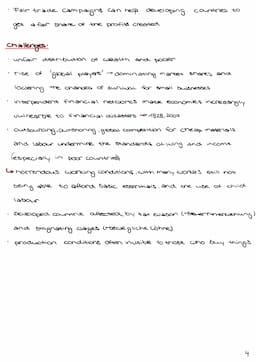 · Fair trade campaigns can help developing countries to
get a fair share of the profits created
Challenges:
· unfair distribution of wealth and power
· rise of "global players" → dominating market shares and
lowering the chances of survival for small businesses
· interdependent financial networks make economies increasingly
vulnerable to financial disasters → 1929, 2007
· Outsourcing, outsourcing, global competition for cheap materials
and labour undermine the standards of living and income
(especially in poor countries)
↳ horrendous working conditions, with many workers still not
being able to afford basic essentials and the use of child
labour
· Developed countries affected by tax evasion (Steuerhinterziehung)
and stagnating wages
· production conditions often invisible to those who buy things
4